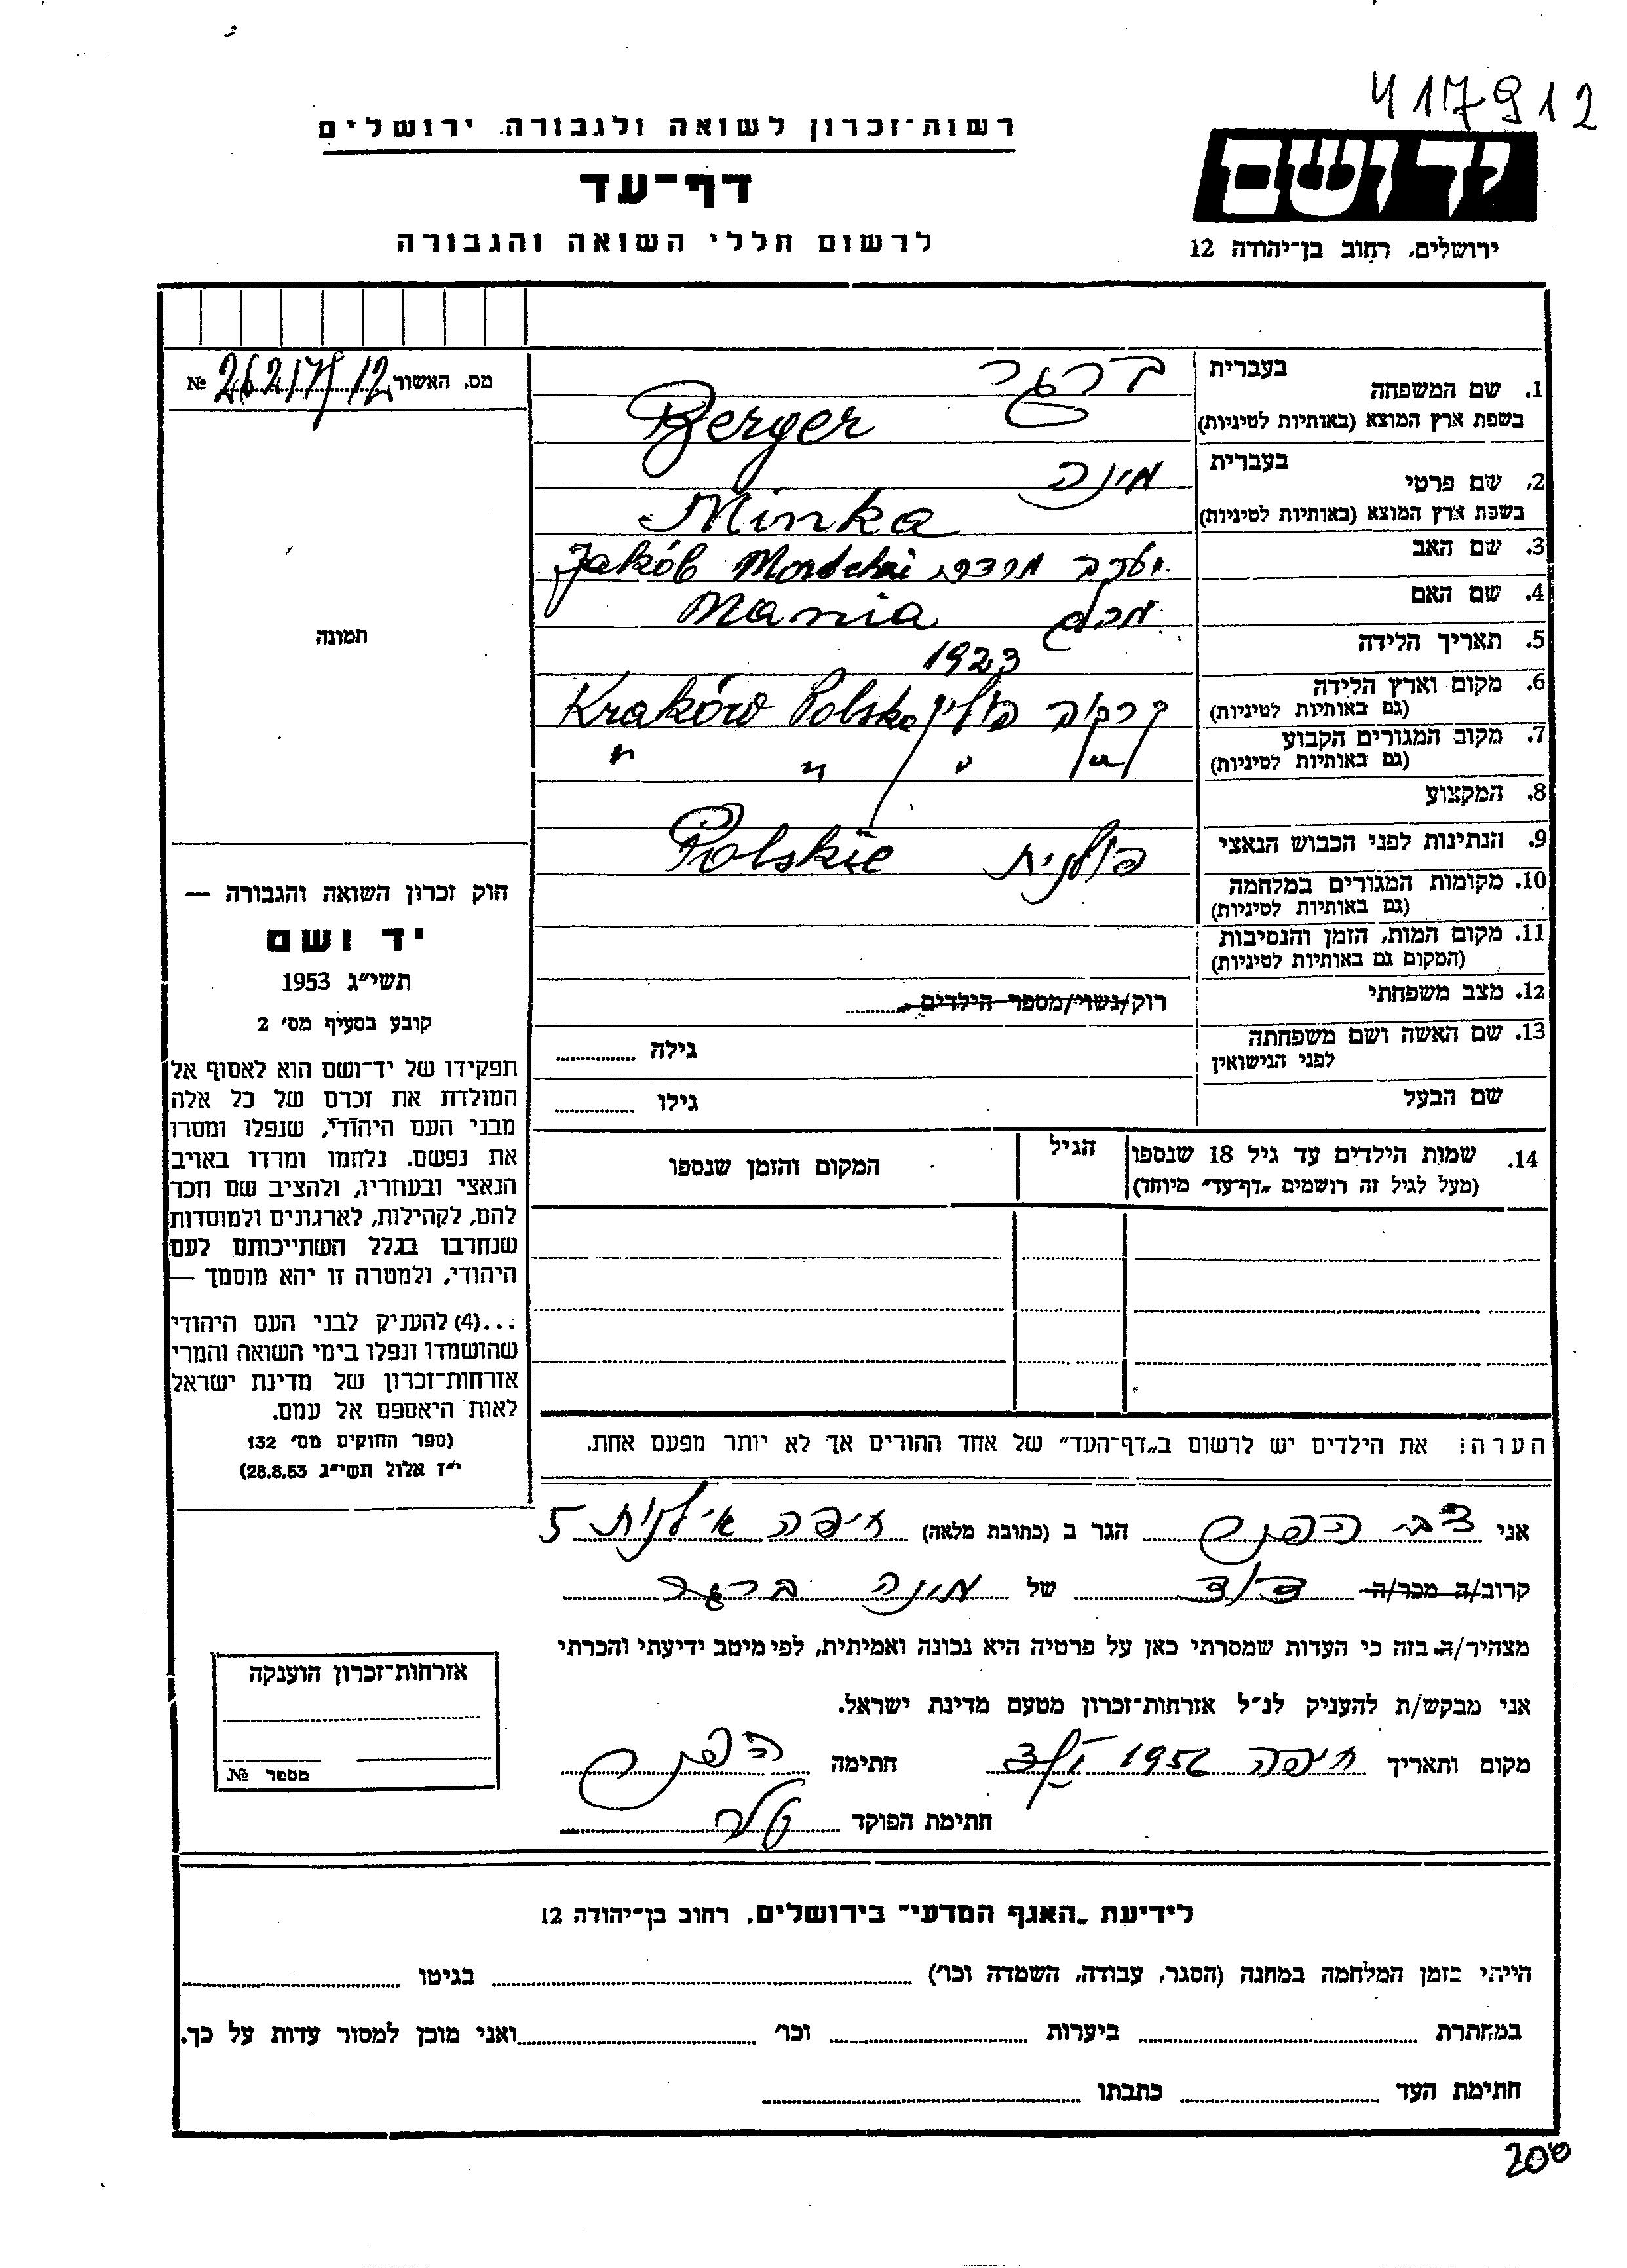 417912
רשות־זכרון לשואה ולגבורה, ירושלים
דף־עד
לרשום חללי השואה והגבורה
יד ושם
ירושלים, רחוב בן־יהודה 12
מס. האשור № 26217/12
1. שם המשפחה
בעברית ברגר
בשפת ארץ המוצא (באותיות לטיניות) Berger
2. שם פרטי
בעברית מינה
בשפת ארץ המוצא (באותיות לטיניות) Minka
3. שם האב יעקב מרדכי Jakób Mordchai
4. שם האם Mania
5. תאריך הלידה 1923
6. מקום וארץ הלידה
(גם באותיות לטיניות) קרקוב פולין Kraków Polska
7. מקום המגורים הקבוע
(גם באותיות לטיניות) " " "
8. המקצוע
9. הנתינות לפני הכבוש הנאצי פולנית Polskie
10. מקומות המגורים במלחמה
(גם באותיות לטיניות)
11. מקום המות, הזמן והנסיבות
(המקום גם באותיות לטיניות)
12. מצב משפחתי רוק/נשוי/מספר הילדים
13. שם האשה ושם משפחתה
לפני הנישואין גילה
שם הבעל גילו
14. שמות הילדים עד גיל 18 שנספו
(מעל לגיל זה רושמים „דף־עד" מיוחד)
הגיל
המקום והזמן שנספו
הערה: את הילדים יש לרשום ב„דף־העד" של אחד ההורים אך לא יותר מפעם אחת.
תמונה
חוק זכרון השואה והגבורה —
יד ושם
תשי״ג 1953
קובע בסעיף מס׳ 2
תפקידו של יד־ושם הוא לאסוף אל
המולדת את זכרם של כל אלה
מבני העם היהודי, שנפלו ומסרו
את נפשם. נלחמו ומרדו באויב
הנאצי ובעוזריו, ולהציב שם וזכר
להם, לקהילות, לארגונים ולמוסדות
שנחרבו בגלל השתייכותם לעם
היהודי, ולמטרה זו יהא מוסמך —
...(4) להעניק לבני העם היהודי
שהושמדו ונפלו בימי השואה והמרי
אזרחות־זכרון של מדינת ישראל
לאות היאספם אל עמם.
(ספר החוקים מס׳ 132
י״ז אלול תשי״ג 28.8.53)
אני צבי הגר ב (כתובת מלאה) חיפה אילנות 5
קרוב/ה מכר/ה דוד של מינה ברגר
מצהיר/ה בזה כי העדות שמסרתי כאן על פרטיה היא נכונה ואמיתית, לפי מיטב ידיעתי והכרתי
אני מבקש/ת להעניק לנ״ל אזרחות־זכרון מטעם מדינת ישראל.
מקום ותאריך חיפה 1956 חתימה
חתימת הפוקד
אזרחות־זכרון הוענקה
מספר №
לידיעת „האגף המדעי" בירושלים, רחוב בן־יהודה 12
הייתי בזמן המלחמה במחנה (הסגר, עבודה, השמדה וכו׳) בגיטו
במחתרת ביערות וכו׳ ואני מוכן למסור עדות על כך.
חתימת העד כתבתו